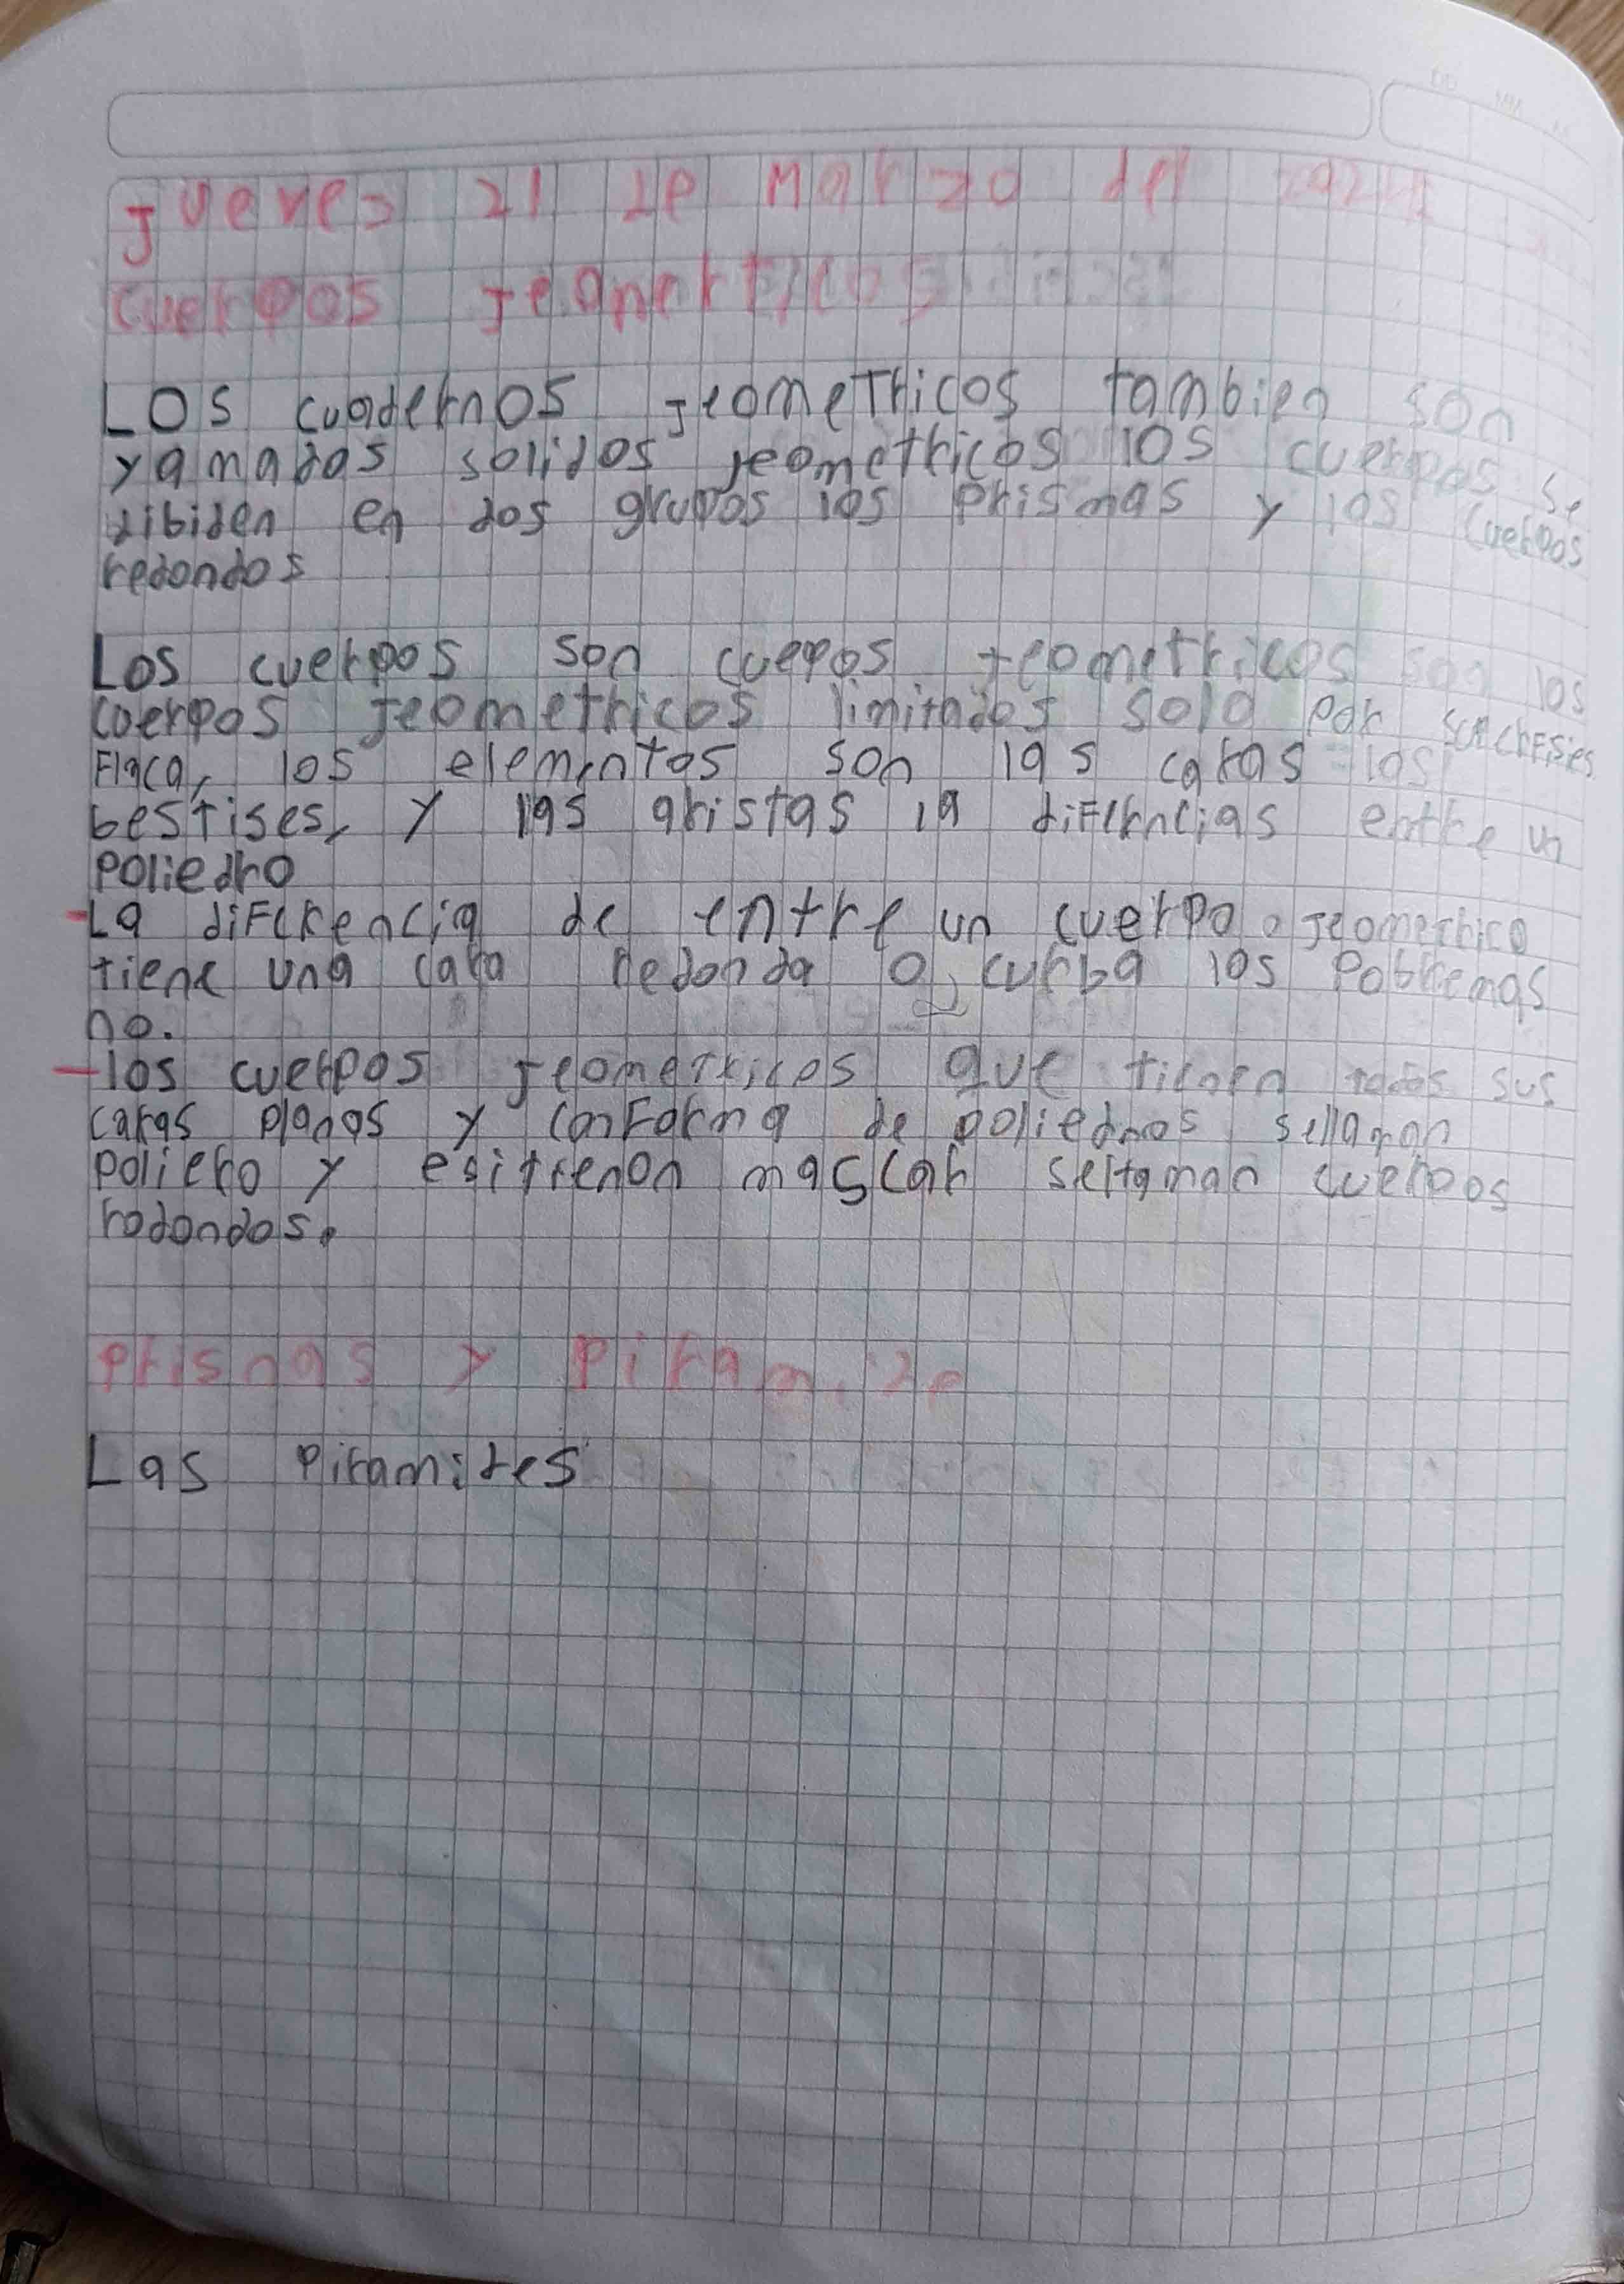 jueves 21 de Marzo del 2024
cuerpos jeometricos
Los cuadernos jeometricos tambien son
yamados solidos jeometricos los cuerpos se
dibiden en dos grupos los prismas y los cuerpos
redondos
Los cuerpos son cuepos jeometricos son los
cuerpos jeometricos limitados solo por
Flaca, los elementos son las caras los
bestises, y las aristas la diferncias entre un
poliedro
-La diferencia de entre un cuerpo jeometrico
tiene una cara redonda o curba los Poblremas
no.
-los cuerpos jeometricos que tienen todos sus
caras planas y conforma de poliedros sellaman
poliero y esitienon mascar sellaman cuerpos
rodondos.
Prismas y Piramide
Las Piramides